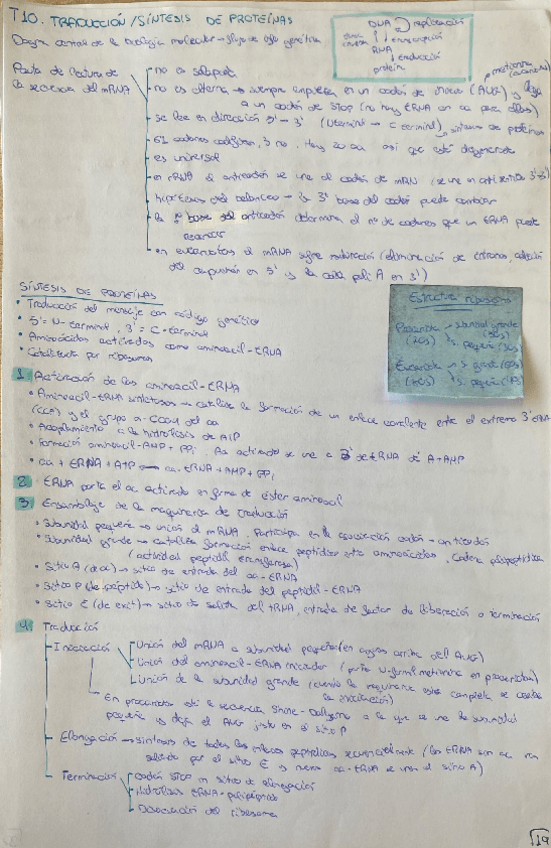 T10. TRADUCCIÓN/SÍNTESIS DE PROTEÍNAS
Dogma central de la biología molecular → flujo de info genética
DNA replicación
transcripción
RNA
traducción
proteína
Pauta de lectura de
la secuencia del mRNA
no es solapada
no es alterna → siempre empieza en un codón de inicio (AUG) y llega
a un codón de STOP (no hay tRNA con aa para ellos)
metionina
se lee en dirección 5' → 3' (N-terminal → C-terminal), síntesis de proteínas
61 codones codifican, 3 no. Hay 20 aa así que está degenerado
es universal
en tRNA el anticodón se une al codón de mRNA (se une en antiparalelo 3'-5')
hipótesis del balanceo → la 3ª base del codón puede cambiar
la 1ª base del anticodón determina el nº de codones que un tRNA puede
reconocer
en eucariotas el mRNA sufre maduración (eliminación de intrones, adición
del capuchón en 5' y la cola poli A en 3')
SÍNTESIS DE PROTEÍNAS
• Traducción del mensaje con código genético
• 5' = N-terminal, 3' = C-terminal
• Aminoácidos activados como aminoacil-tRNA
• Catalizada por ribosomas
Estructura ribosoma
Procariota → subunidad grande (50S)
(70S) ↳ pequeña (30S)
Eucariota → grande (60S)
(80S) ↳ pequeña (40S)
1. Activación de los aminoacil-tRNA
• Aminoacil-tRNA sintetasas → cataliza la formación de un enlace covalente entre el extremo 3' tRNA
(CCA) y el grupo α-COOH del aa
• Acoplamiento a la hidrólisis de ATP
• Formación aminoacil-AMP + PPi. Aa activado se une a 3' de tRNA
• aa + tRNA + ATP → aa-tRNA + AMP + PPi
2. tRNA porta el aa activado en forma de éster aminoacil
3. Ensamblaje de la maquinaria de traducción
• Subunidad pequeña → unión al mRNA. Participa en la asociación codón-anticodón
• Subunidad grande → cataliza formación enlace peptídico entre aminoácidos. Cadena polipeptídica
(actividad peptidil transferasa)
• Sitio A (de aa) → sitio de entrada del aa-tRNA
• Sitio P (de péptido) → sitio de entrada del peptidil-tRNA
• Sitio E (de exit) → sitio de salida del tRNA, entrada de factor de liberación o terminación
4. Traducción
Iniciación
Unión del mRNA a subunidad pequeña (en aguas arriba del AUG)
Unión del aminoacil-tRNA iniciador (porta N-formil metionina en procariotas)
Unión de la subunidad grande (cuando la maquinaria está completa se
la iniciación)
En procariotas está la secuencia Shine-Dalgarno a la que se une la subunidad
pequeña y deja el AUG justo en el sitio P
Elongación → síntesis de todos los enlaces peptídicos secuencialmente (los tRNA sin aa van
saliendo por el sitio E y nuevo aa-tRNA se une al sitio A)
Terminación
codón STOP en sitio de elongación
Hidrólisis tRNA-polipéptido
Disociación del ribosoma
19